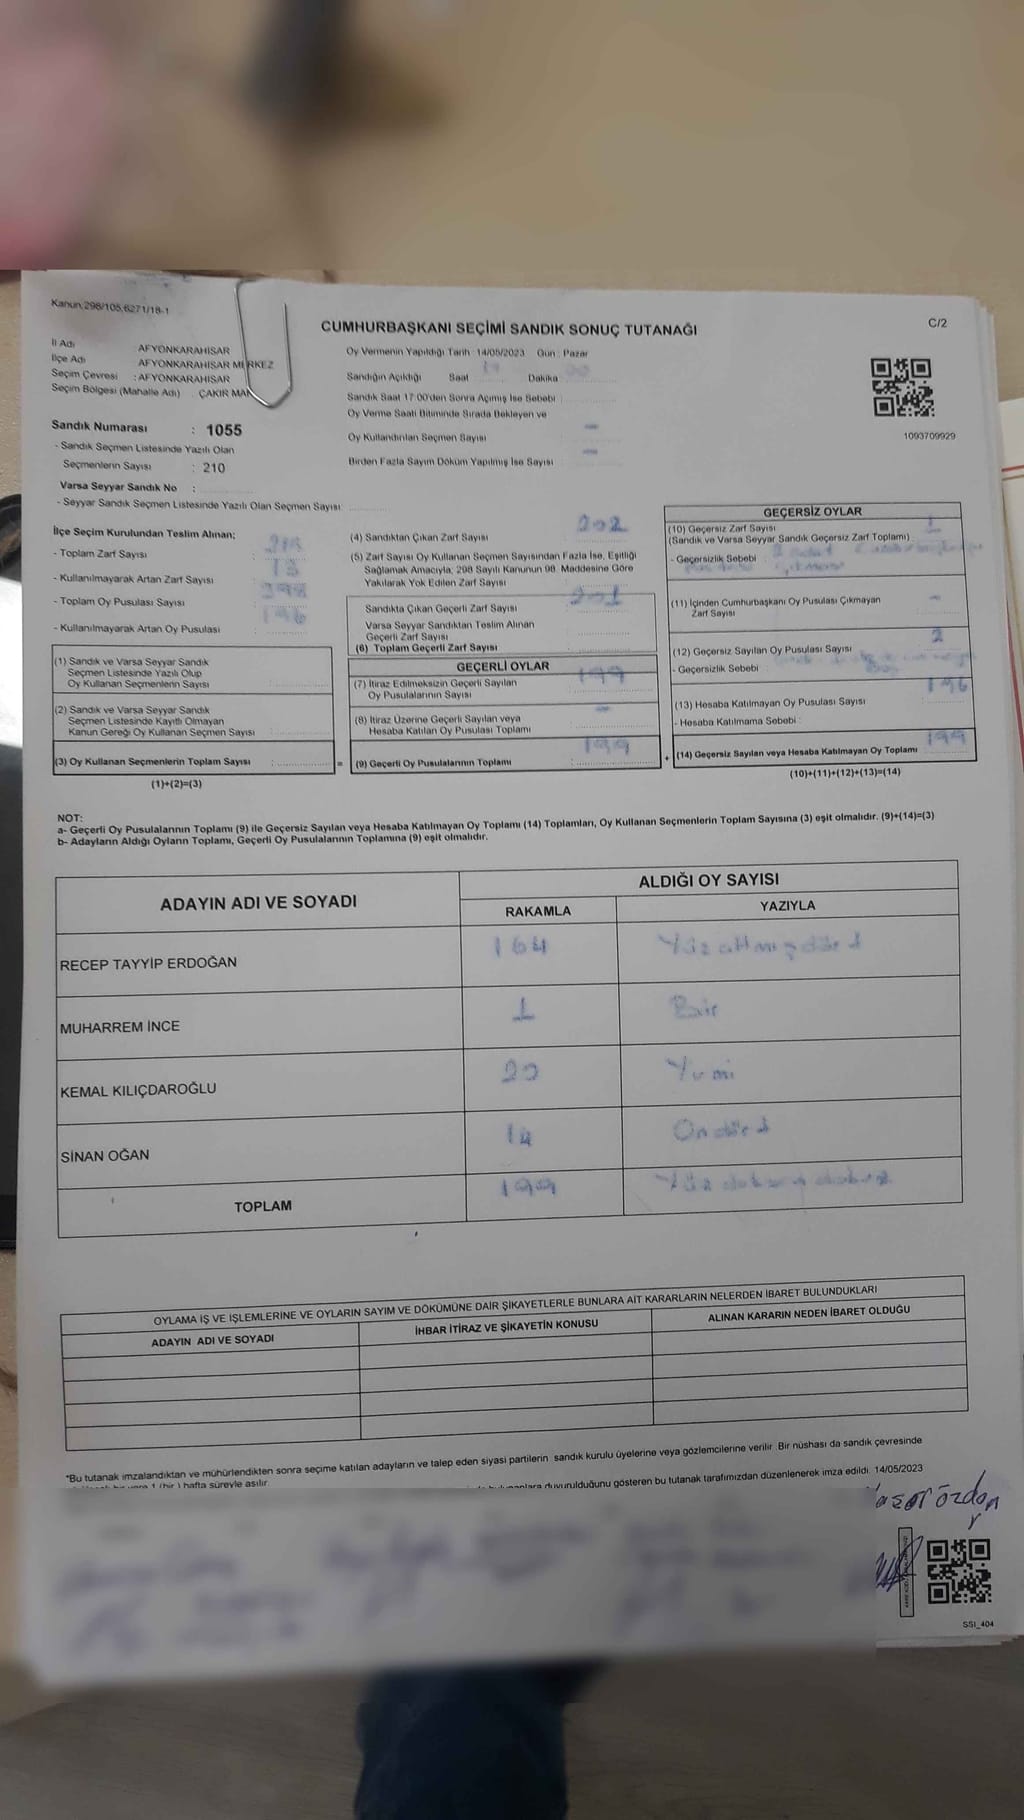 Kanun:298/105,6271/18-1
CUMHURBAŞKANI SEÇİMİ SANDIK SONUÇ TUTANAĞI
C/2
İl Adı AFYONKARAHİSAR
İlçe Adı AFYONKARAHİSAR MERKEZ
Seçim Çevresi : AFYONKARAHİSAR
Seçim Bölgesi (Mahalle Adı) : ÇAKIR
Sandık Numarası : 1055
- Sandık Seçmen Listesinde Yazılı Olan
Seçmenlerin Sayısı : 210
Varsa Seyyar Sandık No :
- Seyyar Sandık Seçmen Listesinde Yazılı Olan Seçmen Sayısı
Oy Vermenin Yapıldığı Tarih 14/05/2023 Gün : Pazar
Sandığın Açıldığı Saat Dakika 00
Sandık Saat 17:00'den Sonra Açımış İse Sebebi :
Oy Verme Saati Bitiminde Sırada Bekleyen ve
Oy Kullandırılan Seçmen Sayısı -
Birden Fazla Sayım Döküm Yapılmış İse Sayısı -
1093709929
İlçe Seçim Kurulundan Teslim Alınan;
- Toplam Zarf Sayısı
- Kullanılmayarak Artan Zarf Sayısı 13
- Toplam Oy Pusulası Sayısı
- Kullanılmayarak Artan Oy Pusulası 196
(1) Sandık ve Varsa Seyyar Sandık
Seçmen Listesinde Yazılı Olup
Oy Kullanan Seçmenlerin Sayısı
(2) Sandık ve Varsa Seyyar Sandık
Seçmen Listesinde Kayıtlı Olmayan
Kanun Gereği Oy Kullanan Seçmen Sayısı
(3) Oy Kullanan Seçmenlerin Toplam Sayısı :
(1)+(2)=(3)
(4) Sandıktan Çıkan Zarf Sayısı 202
(5) Zarf Sayısı Oy Kullanan Seçmen Sayısından Fazla İse, Eşitliği
Sağlamak Amacıyla, 298 Sayılı Kanunun 98. Maddesine Göre
Yakılarak Yok Edilen Zarf Sayısı
Sandıkta Çıkan Geçerli Zarf Sayısı 201
Varsa Seyyar Sandıktan Teslim Alınan
Geçerli Zarf Sayısı
(6) Toplam Geçerli Zarf Sayısı
=
GEÇERLİ OYLAR
(7) İtiraz Edilmeksizin Geçerli Sayılan
Oy Pusulalarının Sayısı 199
(8) İtiraz Üzerine Geçerli Sayılan veya
Hesaba Katılan Oy Pusulası Toplamı -
(9) Geçerli Oy Pusulalarının Toplamı 199
+
GEÇERSİZ OYLAR
(10) Geçersiz Zarf Sayısı 1
(Sandık ve Varsa Seyyar Sandık Geçersiz Zarf Toplamı)
- Geçersizlik Sebebi
(11) İçinden Cumhurbaşkanı Oy Pusulası Çıkmayan
Zarf Sayısı -
(12) Geçersiz Sayılan Oy Pusulası Sayısı 2
- Geçersizlik Sebebi
(13) Hesaba Katılmayan Oy Pusulası Sayısı 196
- Hesaba Katılmama Sebebi :
(14) Geçersiz Sayılan veya Hesaba Katılmayan Oy Toplamı 199
(10)+(11)+(12)+(13)=(14)
NOT:
a- Geçerli Oy Pusulalarının Toplamı (9) ile Geçersiz Sayılan veya Hesaba Katılmayan Oy Toplamı (14) Toplamları, Oy Kullanan Seçmenlerin Toplam Sayısına (3) eşit olmalıdır. (9)+(14)=(3)
b- Adayların Aldığı Oyların Toplamı, Geçerli Oy Pusulalarının Toplamına (9) eşit olmalıdır.
ADAYIN ADI VE SOYADI ALDIĞI OY SAYISI
RAKAMLA YAZIYLA
RECEP TAYYİP ERDOĞAN 164 Yüz altmışdört
MUHARREM İNCE 1 Bir
KEMAL KILIÇDAROĞLU 20 Yirmi
SİNAN OĞAN 14 Ondört
TOPLAM 199 Yüz doksan dokuz
OYLAMA İŞ VE İŞLEMLERİNE VE OYLARIN SAYIM VE DÖKÜMÜNE DAİR ŞİKAYETLERLE BUNLARA AİT KARARLARIN NELERDEN İBARET BULUNDUKLARI
ADAYIN ADI VE SOYADI İHBAR İTİRAZ VE ŞİKAYETİN KONUSU ALINAN KARARIN NEDEN İBARET OLDUĞU
"Bu tutanak imzalandıktan ve mühürlendikten sonra seçime katılan adayların ve talep eden siyasi partilerin sandık kurulu üyelerine veya gözlemcilerine verilir. Bir nüshası da sandık çevresinde
1 (bir) hafta süreyle asılır. duyurulduğunu gösteren bu tutanak tarafımızdan düzenlenerek imza edildi. 14/05/2023
SSI_404